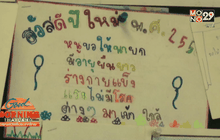 สวัสดีปีใหม่ พ.ศ. 255
หนูขอให้นายก
มีอายุยืนยาว
ร่างกายแข็ง
แรงไม่มีโรค
ต่างๆ มา ใกล้
MONO29